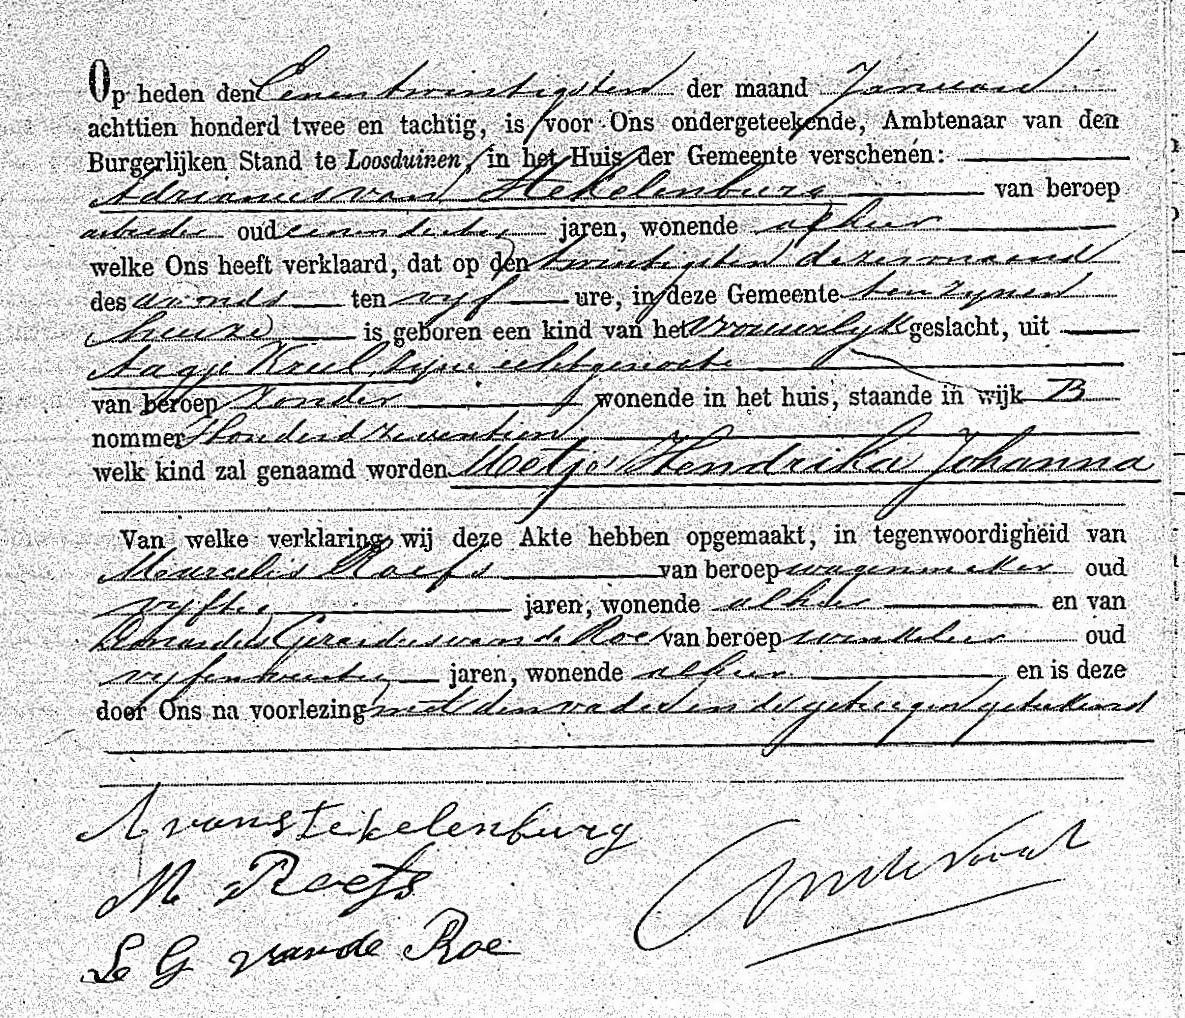 Op heden den Eenentwintigsten der maand Januari
achttien honderd twee en tachtig, is voor Ons ondergeteekende, Ambtenaar van den
Burgerlijken Stand te Loosduinen, in het Huis der Gemeente verschenen:
Adrianus van Stekelenburg van beroep
arbeider oud eenendertig jaren, wonende alhier
welke Ons heeft verklaard, dat op den twintigsten dezer maand
des avonds ten vijf ure, in deze Gemeente ten zijnen
huize is geboren een kind van het vrouwelijk geslacht, uit
Aagje Krul, zijne echtgenoote
van beroep zonder wonende in het huis, staande in wijk B
nommer Honderd zeventien
welk kind zal genaamd worden Metje Hendrika Johanna
Van welke verklaring wij deze Akte hebben opgemaakt, in tegenwoordigheid van
Marcelis Roefs van beroep wagenmaker oud
vijftig jaren, wonende alhier en van
Gerardus van de Roe van beroep winkelier oud
jaren, wonende alhier en is deze
door Ons na voorlezing met den vader en de getuigen geteekend
A van Stekelenburg
M Roefs
L G van de Roe